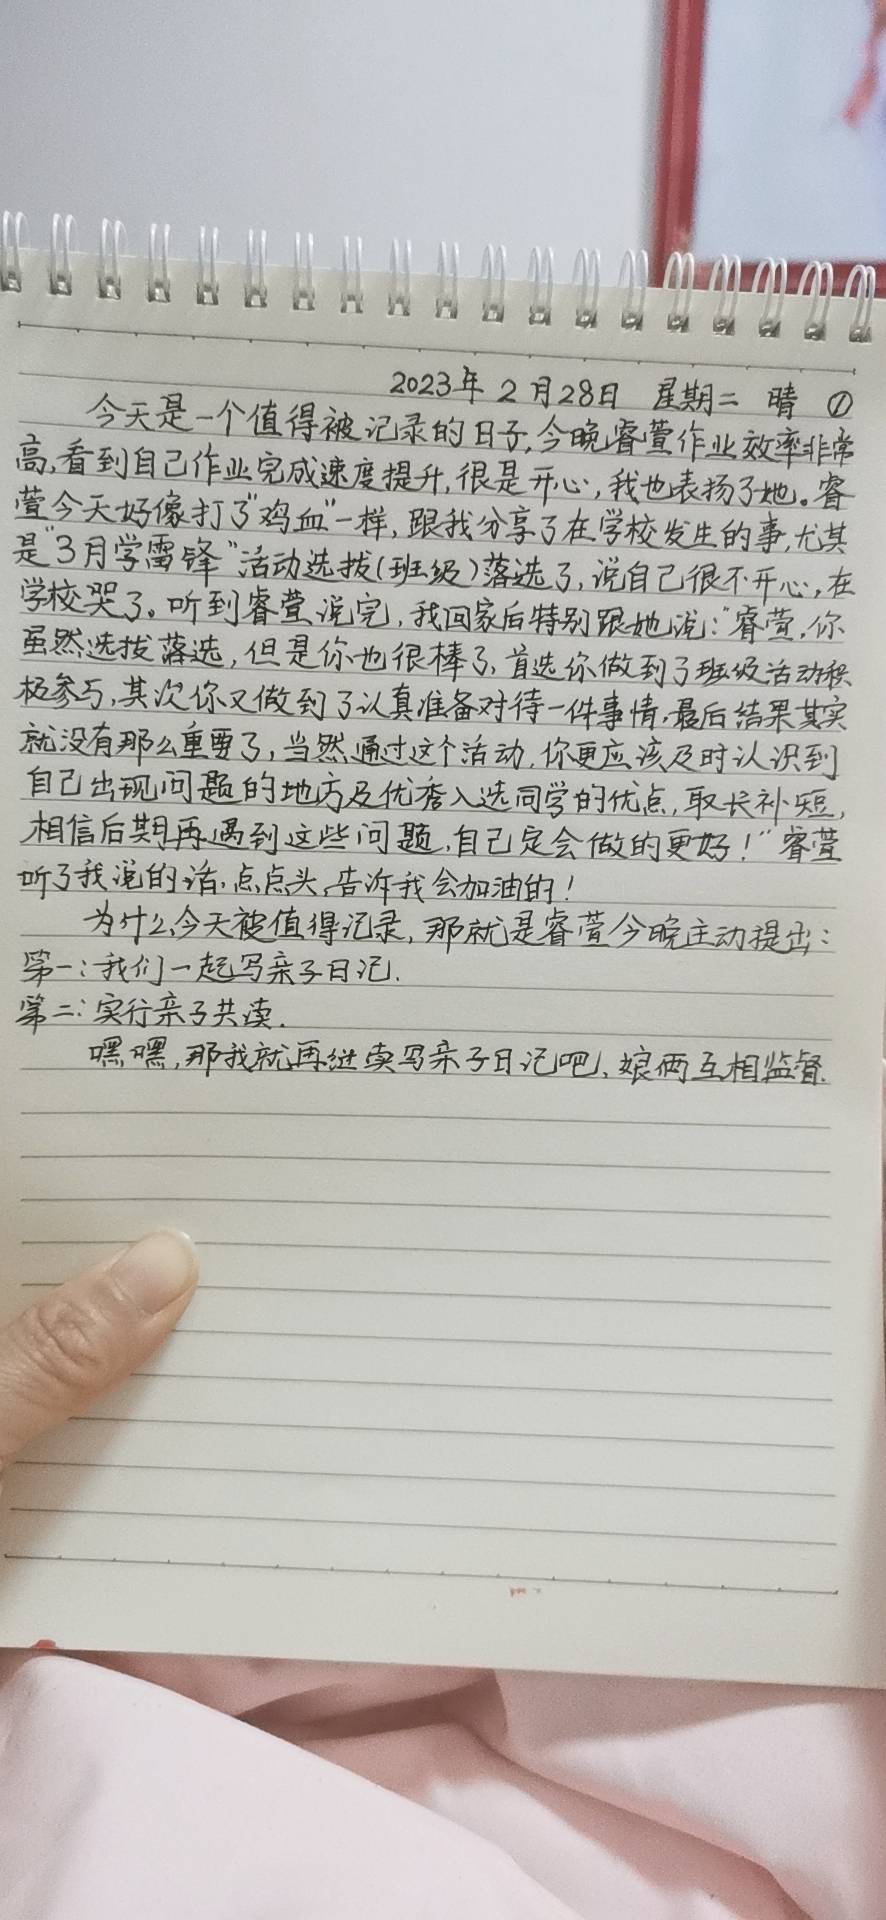 2023年2月28日 星期二 晴 ①
今天是一个值得被记录的日子,今晚睿萱作业效率非常
高,看到自己作业完成速度提升,很是开心,我也表扬了她。睿
萱今天好像打了"鸡血"一样,跟我分享了在学校发生的事,尤其
是"3月学雷锋"活动选拔(班级)落选了,说自己很不开心,在
学校哭了。听到睿萱说完,我回家后特别跟她说:"睿萱,你
虽然选拔落选,但是你也很棒了,首选你做到了班级活动积
极参与,其次你又做到了认真准备对待一件事情,最后结果其实
就没有那么重要了,当然通过这个活动,你更应该及时认识到
自己出现问题的地方及优秀入选同学的优点,取长补短,
相信后期再遇到这些问题,自己定会做的更好!"睿萱
听了我说的话,点点头,告诉我会加油的!
为什么今天被值得记录,那就是睿萱今晚主动提出:
第一:我们一起写亲子日记.
第二:实行亲子共读.
嘿嘿,那我就再继续写亲子日记吧,娘俩互相监督.